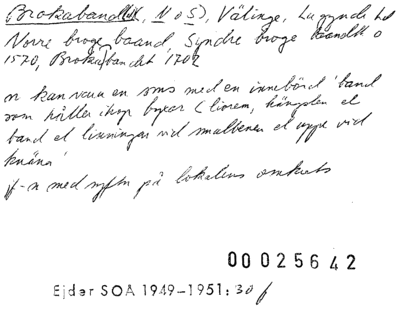 Brokaband(et, N o S), Välinge, Luggude hd
Norre broge baand, Syndre broge baandh o
1570, Brokabandet 1702
n kan vara en sms med en innebörd 'band
som håller ihop byxor (livrem, hängslen el
band el linningar vid smalbenen el uppe vid
knäna'
jf -n med syftn på lokalens omkrets
00025642
Ejder SOA 1949-1951: 30 f